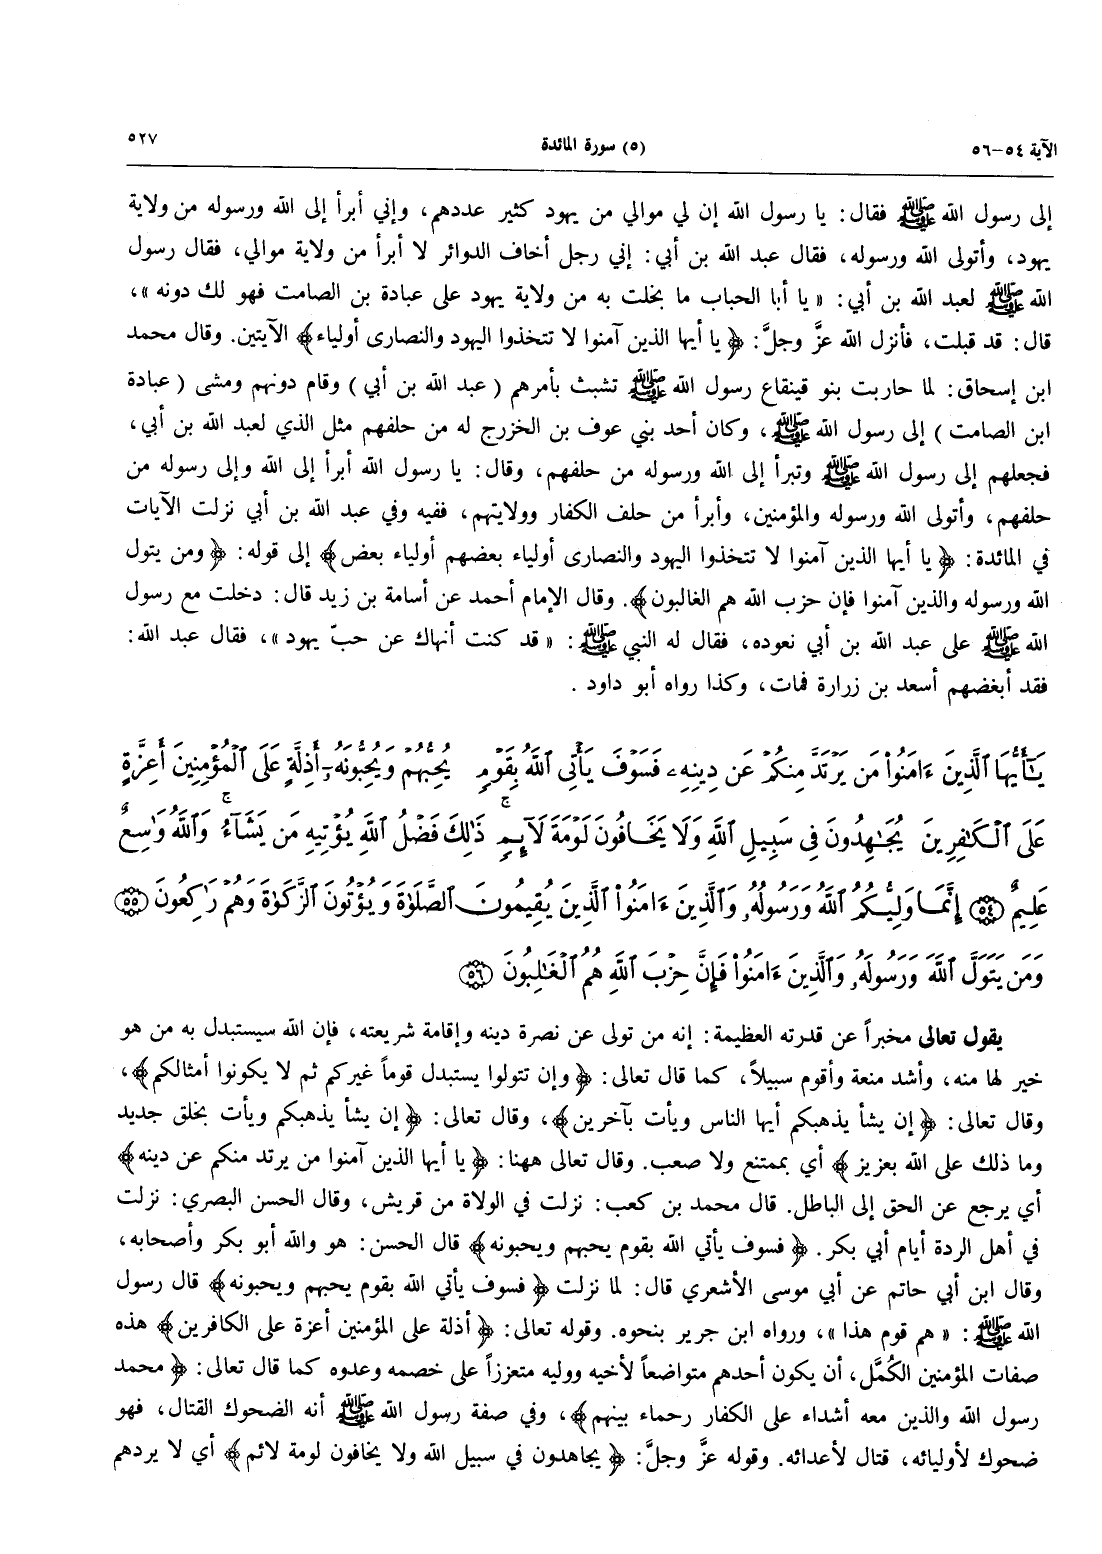 الآية ٥٤-٥٦ (٥) سورة المائدة ٥٢٧
إلى رسول الله ﷺ فقال: يا رسول الله إن لي موالي من يهود كثير عددهم، وإني أبرأ إلى الله ورسوله من ولاية
يهود، وأتولى الله ورسوله، فقال عبد الله بن أبي: إني رجل أخاف الدوائر لا أبرأ من ولاية موالي، فقال رسول
الله ﷺ لعبد الله بن أبي: « يا أبا الحباب ما بخلت به من ولاية يهود على عبادة بن الصامت فهو لك دونه »،
قال: قد قبلت، فأنزل الله عزَّ وجلَّ: ﴿ يا أيها الذين آمنوا لا تتخذوا اليهود والنصارى أولياء﴾ الآيتين. وقال محمد
ابن إسحاق: لما حاربت بنو قينقاع رسول الله ﷺ تشبث بأمرهم ( عبد الله بن أبي ) وقام دونهم ومشى ( عبادة
ابن الصامت ) إلى رسول الله ﷺ، وكان أحد بني عوف بن الخزرج له من حلفهم مثل الذي لعبد الله بن أبي،
فجعلهم إلى رسول الله ﷺ وتبرأ إلى الله ورسوله من حلفهم، وقال: يا رسول الله أبرأ إلى الله وإلى رسوله من
حلفهم، وأتولى الله ورسوله والمؤمنين، وأبرأ من حلف الكفار وولايتهم، ففيه وفي عبد الله بن أبي نزلت الآيات
في المائدة: ﴿ يا أيها الذين آمنوا لا تتخذوا اليهود والنصارى أولياء بعضهم أولياء بعض﴾ إلى قوله: ﴿ ومن يتول
الله ورسوله والذين آمنوا فإن حزب الله هم الغالبون﴾. وقال الإمام أحمد عن أسامة بن زيد قال: دخلت مع رسول
الله ﷺ على عبد الله بن أبي نعوده، فقال له النبي ﷺ: « قد كنت أنهاك عن حبّ يهود »، فقال عبد الله:
فقد أبغضهم أسعد بن زرارة فمات، وكذا رواه أبو داود .
يَـٰٓأَيُّهَا ٱلَّذِينَ ءَامَنُوا۟ مَن يَرْتَدَّ مِنكُمْ عَن دِينِهِۦ فَسَوْفَ يَأْتِى ٱللَّهُ بِقَوْمٍ يُحِبُّهُمْ وَيُحِبُّونَهُۥٓ أَذِلَّةٍ عَلَى ٱلْمُؤْمِنِينَ أَعِزَّةٍ
عَلَى ٱلْكَـٰفِرِينَ يُجَـٰهِدُونَ فِى سَبِيلِ ٱللَّهِ وَلَا يَخَافُونَ لَوْمَةَ لَآئِمٍ ۚ ذَٰلِكَ فَضْلُ ٱللَّهِ يُؤْتِيهِ مَن يَشَآءُ ۚ وَٱللَّهُ وَٰسِعٌ
عَلِيمٌ ﴿٥٤﴾ إِنَّمَا وَلِيُّكُمُ ٱللَّهُ وَرَسُولُهُۥ وَٱلَّذِينَ ءَامَنُوا۟ ٱلَّذِينَ يُقِيمُونَ ٱلصَّلَوٰةَ وَيُؤْتُونَ ٱلزَّكَوٰةَ وَهُمْ رَٰكِعُونَ ﴿٥٥﴾
وَمَن يَتَوَلَّ ٱللَّهَ وَرَسُولَهُۥ وَٱلَّذِينَ ءَامَنُوا۟ فَإِنَّ حِزْبَ ٱللَّهِ هُمُ ٱلْغَـٰلِبُونَ ﴿٥٦﴾
يقول تعالى مخبراً عن قدرته العظيمة: إنه من تولى عن نصرة دينه وإقامة شريعته، فإن الله سيستبدل به من هو
خير لها منه، وأشد منعة وأقوم سبيلاً، كما قال تعالى: ﴿ وإن تتولوا يستبدل قوماً غيركم ثم لا يكونوا أمثالكم﴾،
وقال تعالى: ﴿ إن يشأ يذهبكم أيها الناس ويأت بآخرين﴾، وقال تعالى: ﴿ إن يشأ يذهبكم ويأت بخلق جديد
وما ذلك على الله بعزيز ﴾ أي بممتنع ولا صعب. وقال تعالى ههنا: ﴿ يا أيها الذين آمنوا من يرتد منكم عن دينه﴾
أي يرجع عن الحق إلى الباطل. قال محمد بن كعب: نزلت في الولاة من قريش، وقال الحسن البصري: نزلت
في أهل الردة أيام أبي بكر. ﴿ فسوف يأتي الله بقوم يحبهم ويحبونه﴾ قال الحسن: هو والله أبو بكر وأصحابه،
وقال ابن أبي حاتم عن أبي موسى الأشعري قال: لما نزلت ﴿ فسوف يأتي الله بقوم يحبهم ويحبونه﴾ قال رسول
الله ﷺ: « هم قوم هذا »، ورواه ابن جرير بنحوه. وقوله تعالى: ﴿ أذلة على المؤمنين أعزة على الكافرين ﴾ هذه
صفات المؤمنين الكُمَّل، أن يكون أحدهم متواضعاً لأخيه ووليه متعززاً على خصمه وعدوه كما قال تعالى: ﴿ محمد
رسول الله والذين معه أشداء على الكفار رحماء بينهم﴾، وفي صفة رسول الله ﷺ أنه الضحوك القتال، فهو
ضحوك لأوليائه، قتال لأعدائه. وقوله عزَّ وجلَّ: ﴿ يجاهدون في سبيل الله ولا يخافون لومة لائم﴾ أي لا يردهم